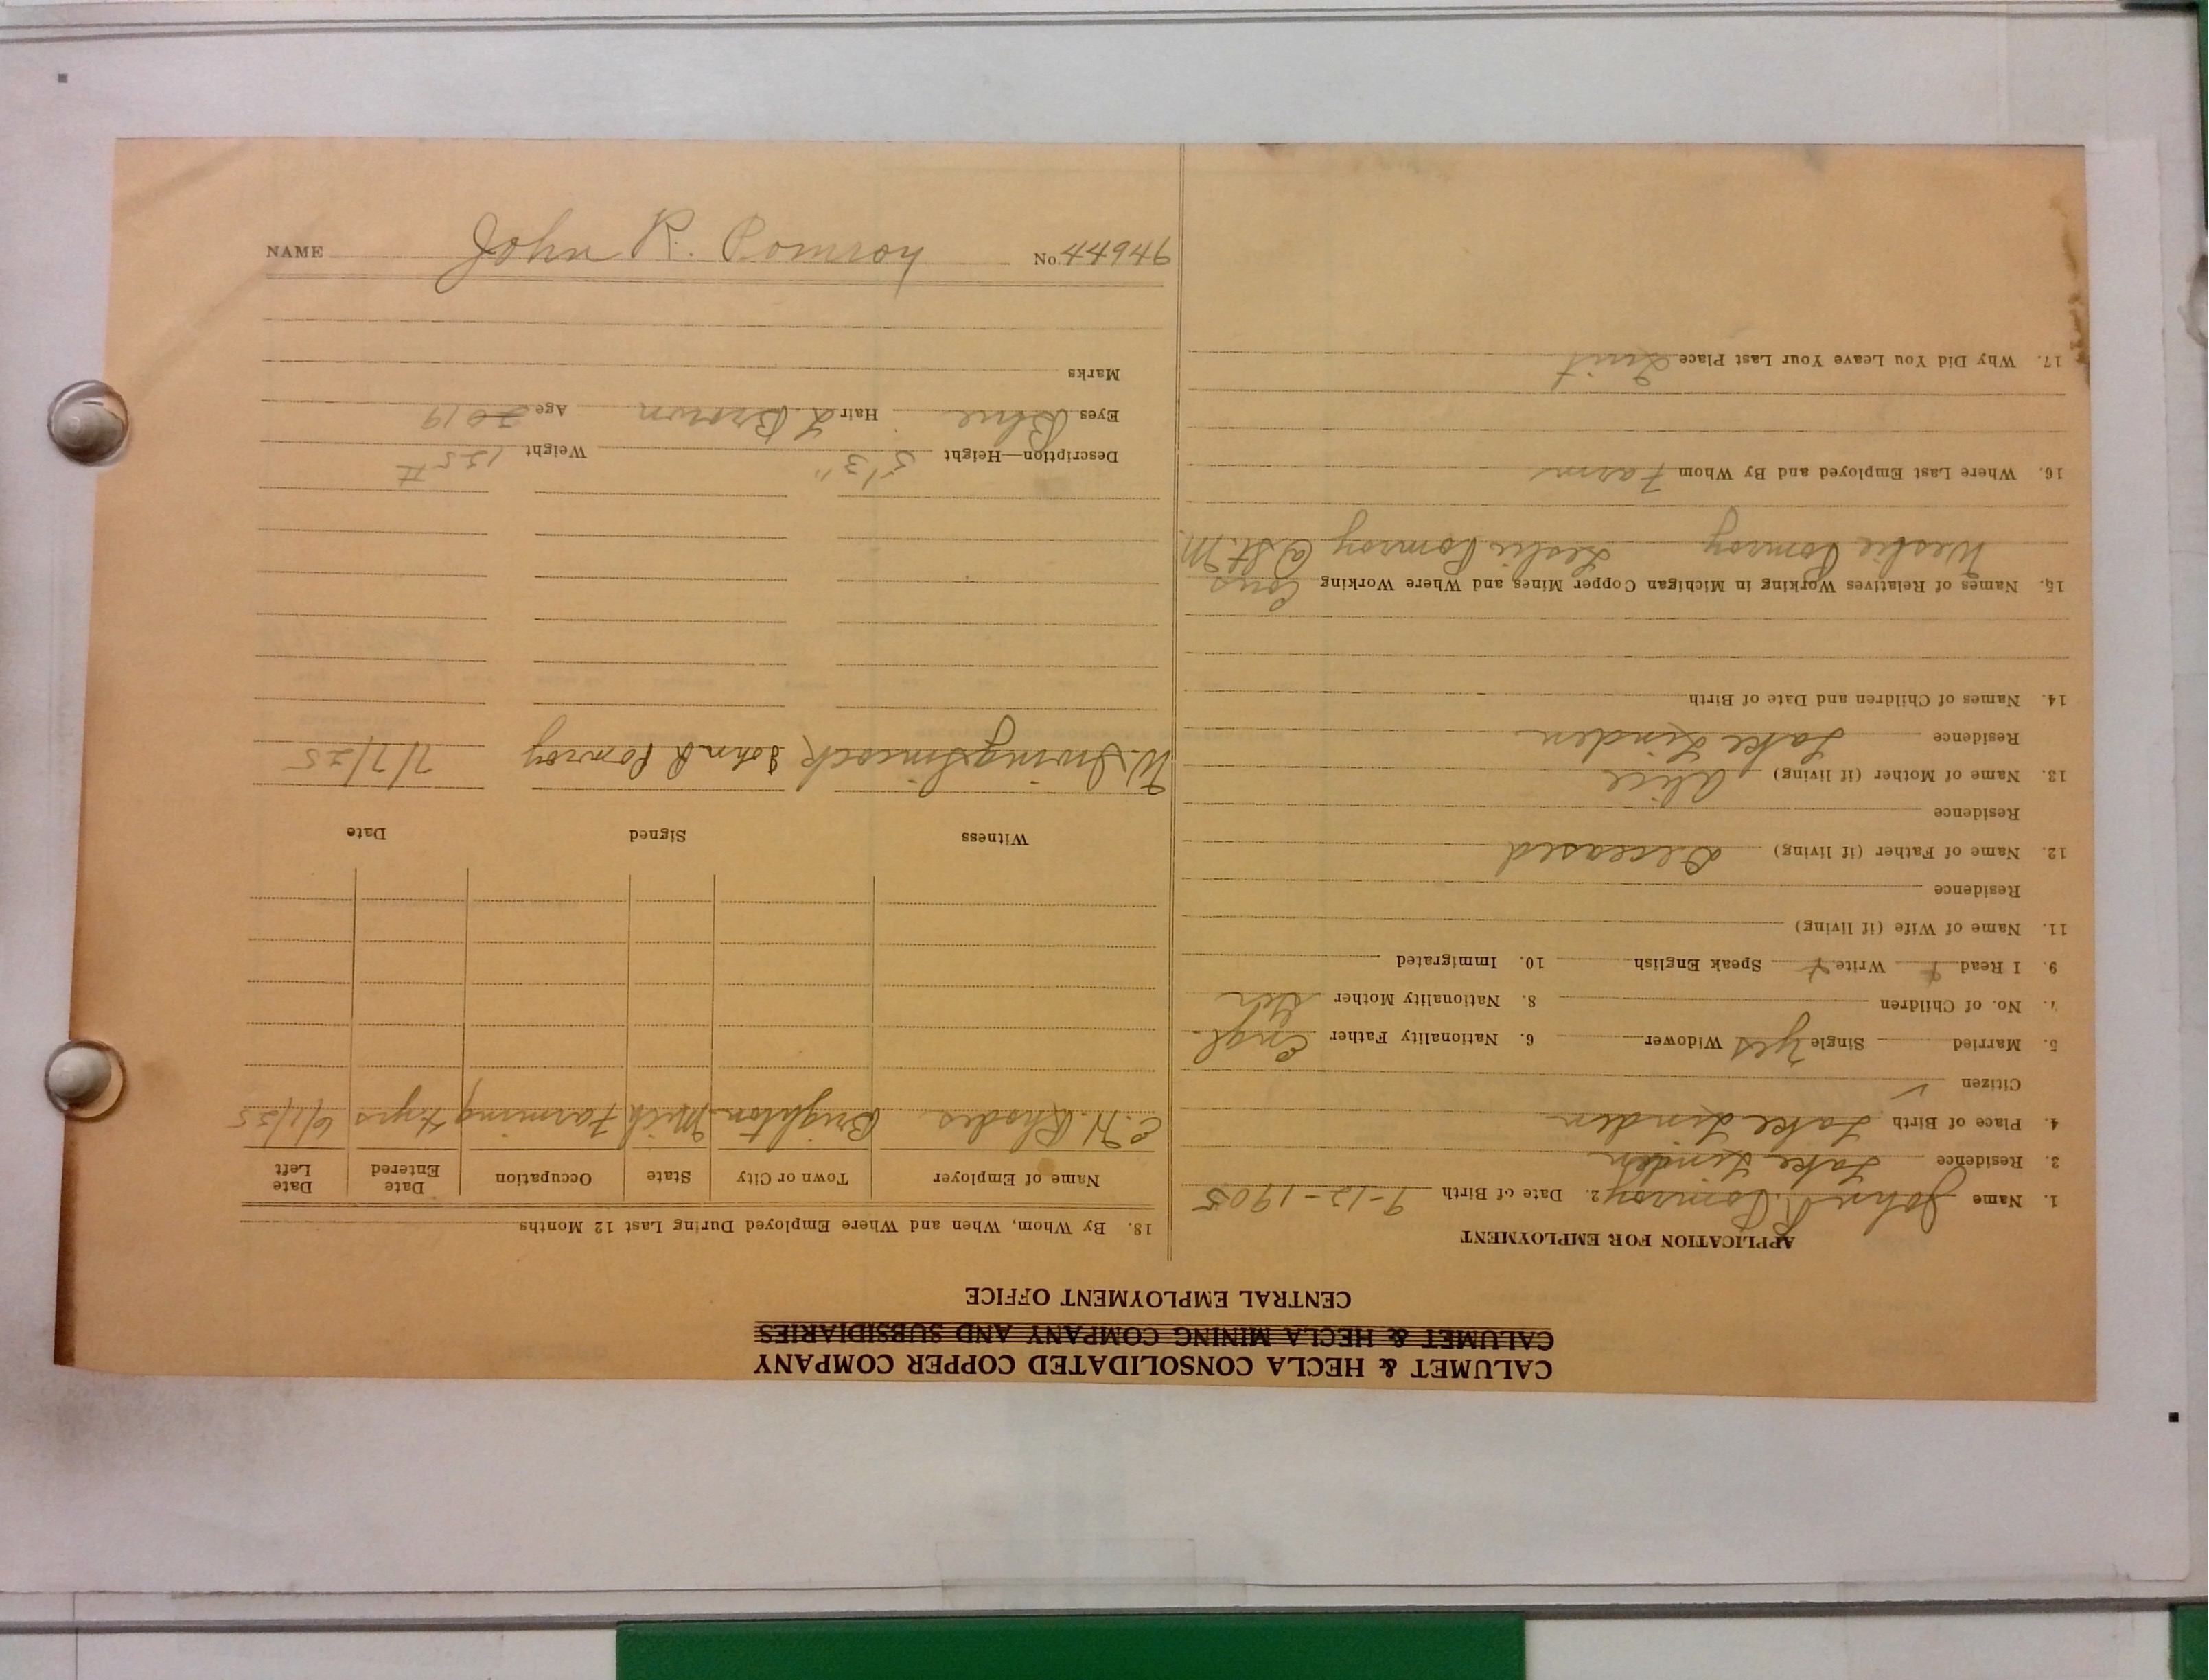 CALUMET & HECLA CONSOLIDATED COPPER COMPANY
CALUMET & HECLA MINING COMPANY AND SUBSIDIARIES
CENTRAL EMPLOYMENT OFFICE
APPLICATION FOR EMPLOYMENT
1. Name John R. Pomroy 2. Date of Birth 9-12-1905
3. Residence Lake Linden
4. Place of Birth Lake Linden
Citizen ✓
5. Married Single Yes Widower 6. Nationality Father Engl.
7. No. of Children 8. Nationality Mother
9. I Read Write Speak English 10. Immigrated
11. Name of Wife (if living)
Residence
12. Name of Father (if living) Deceased
Residence
13. Name of Mother (if living) Alice
Residence Lake Linden
14. Names of Children and Date of Birth
15. Names of Relatives Working in Michigan Copper Mines and Where Working Cous
Weslie Pomroy Leslie Pomroy @ St. M.
16. Where Last Employed and By Whom Farm
17. Why Did You Leave Your Last Place Quit
18. By Whom, When and Where Employed During Last 12 Months
Name of Employer Town or City State Occupation Date Entered Date Left
C. H. Rhodes Brighton Mich Farming 4 yrs 6/1/25
Witness Signed Date
W. Irving Simcock John R Pomroy 7/7/25
Description—Height 5'3" Weight 135 #
Eyes Blue Hair L Brown Age 20 19
Marks
NAME John R. Pomroy No. 44946